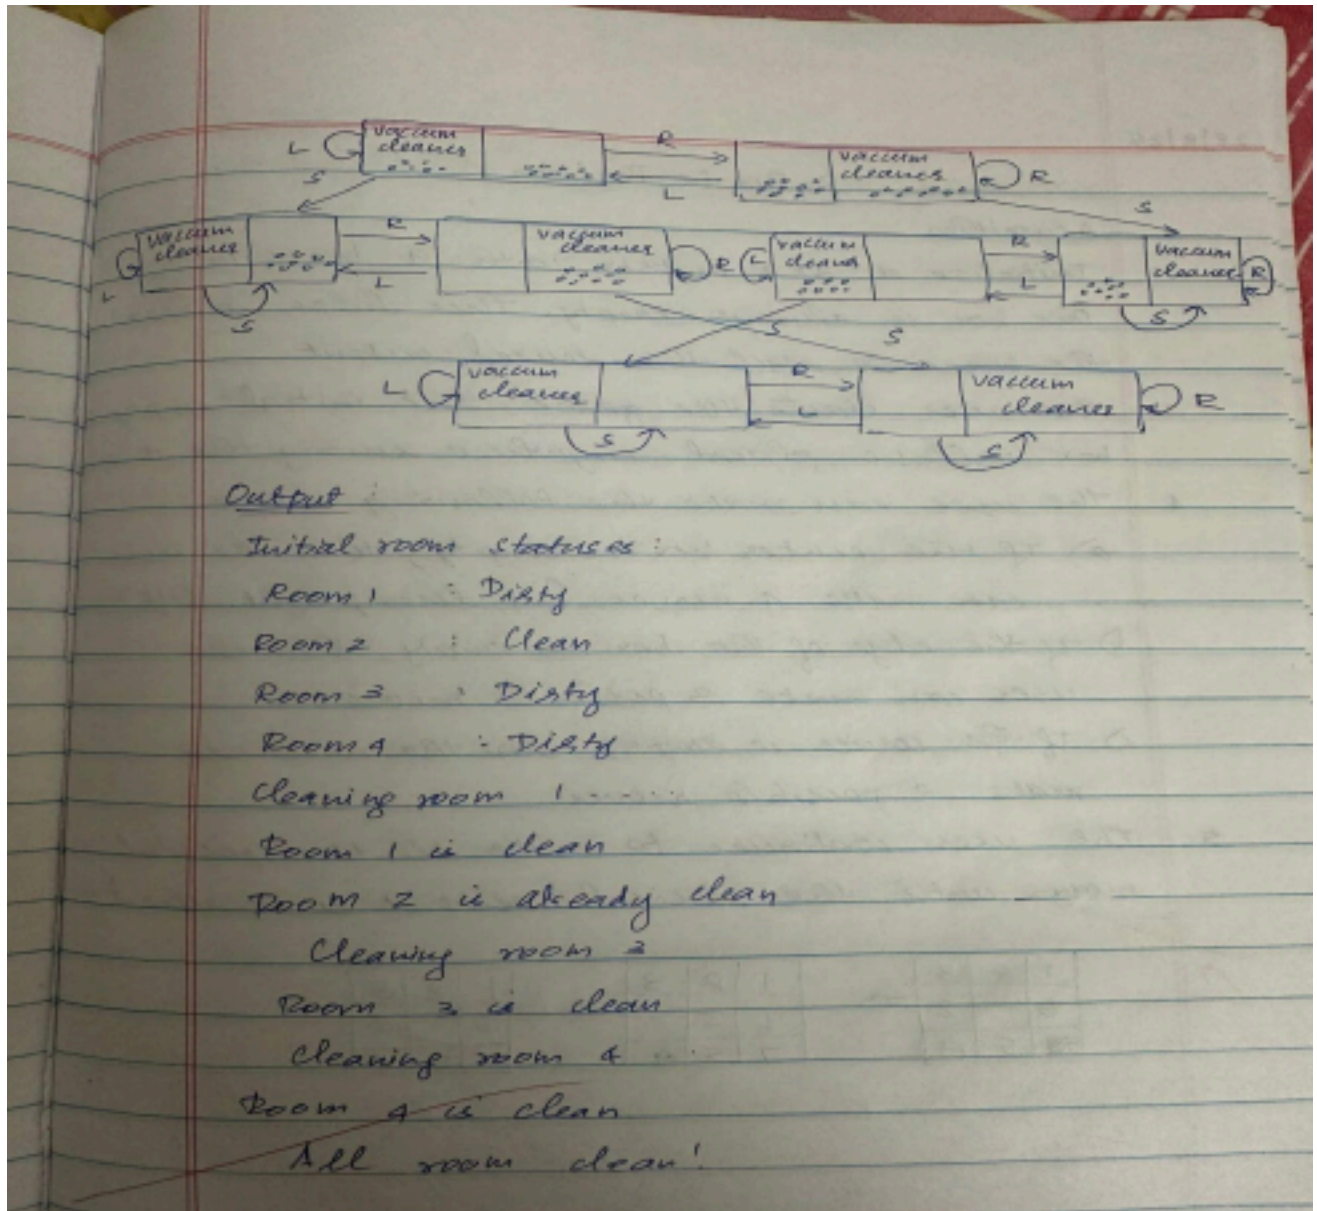 L vaccum R vaccum R
cleaner L cleaner
S S
vaccum R vaccum R L vaccum R vaccum R
cleaner L cleaner cleaner L cleaner
L S S
S S
L vaccum R vaccum R
cleaner L cleaner
S S
Output :
Initial room statuses :
Room 1 : Dirty
Room 2 : Clean
Room 3 : Dirty
Room 4 : Dirty
Cleaning room 1 ......
Room 1 is clean
Room 2 is already clean
Cleaning room 3
Room 3 is clean
Cleaning room 4
Room 4 is clean
All room clean!